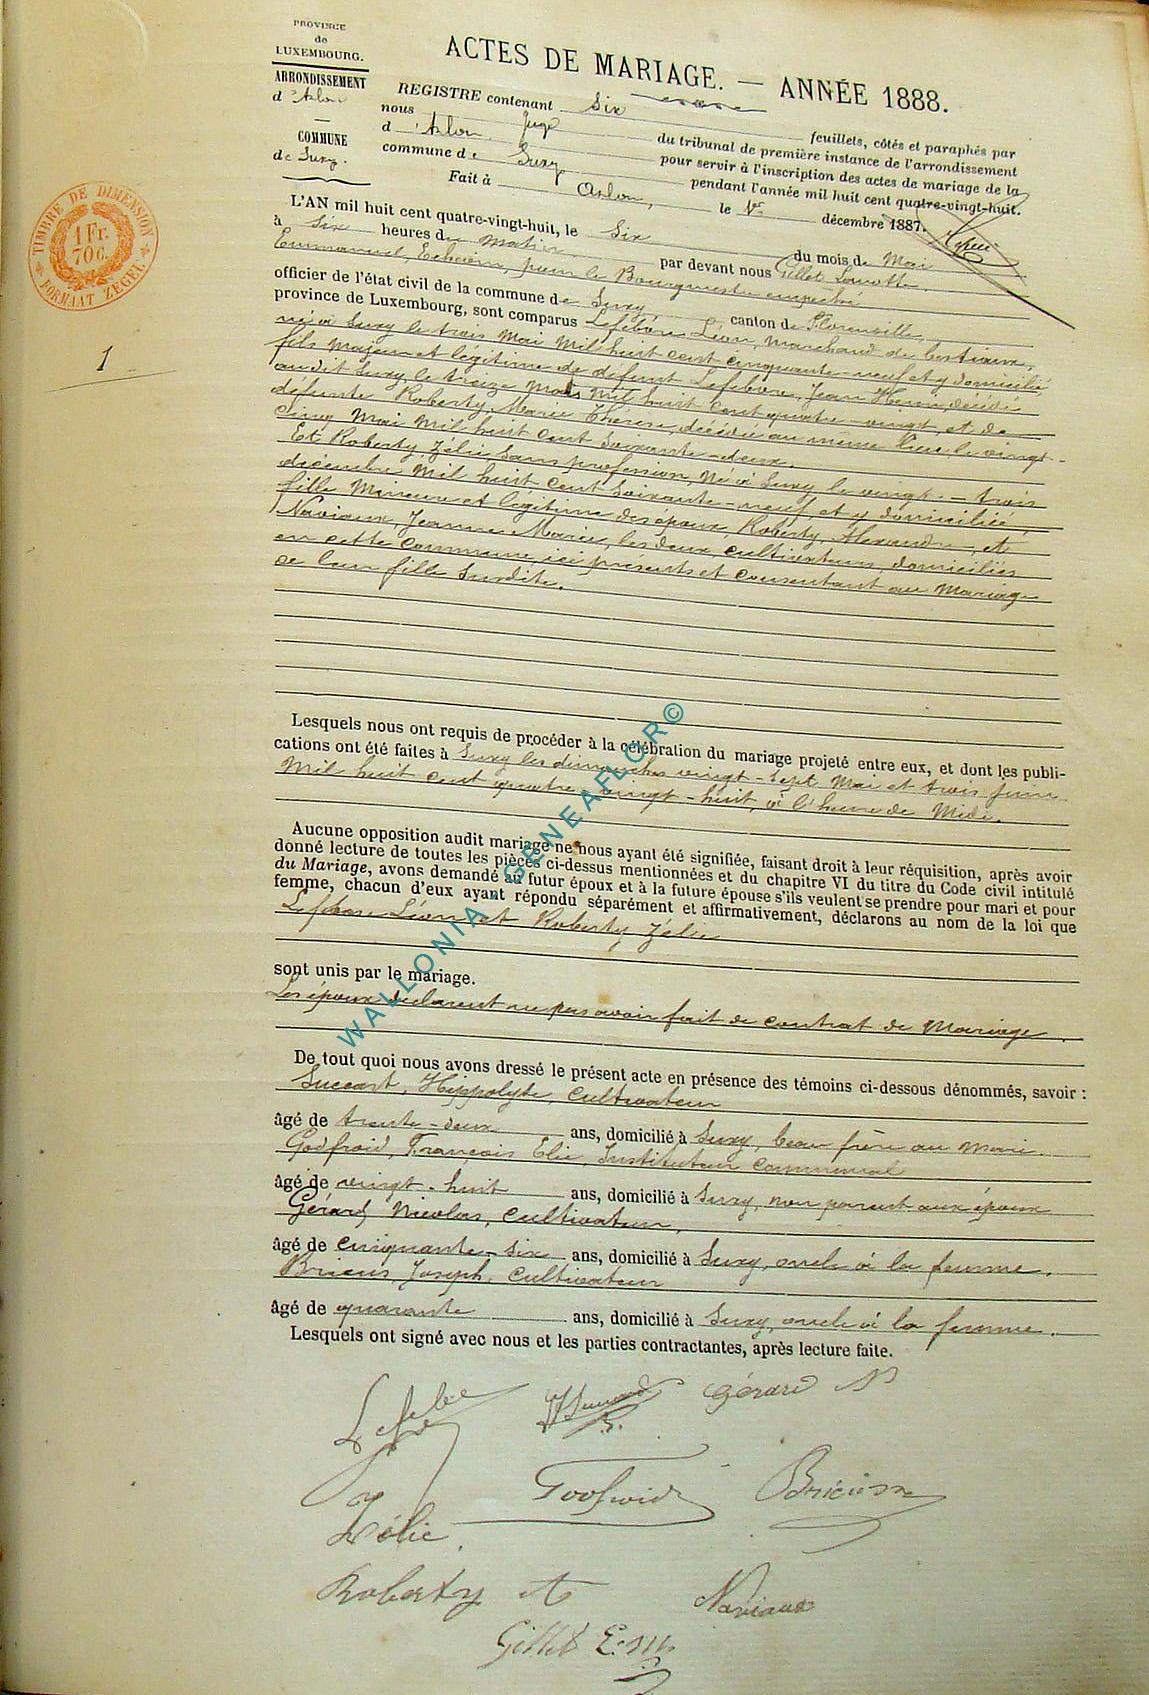 PROVINCE
de
LUXEMBOURG.
ARRONDISSEMENT
d'Arlon
COMMUNE
de Suxy.
ACTES DE MARIAGE. — ANNÉE 1888.
REGISTRE contenant Six feuillets, côtés et paraphés par
nous Juge du tribunal de première instance de l'arrondissement
d'Arlon pour servir à l'inscription des actes de mariage de la
commune de Suxy pendant l'année mil huit cent quatre-vingt-huit.
Fait à Arlon, le 1er décembre 1887.
TIMBRE DE DIMENSION
1 Fr.
70 c.
FORMAAT ZEGEL
1
L'AN mil huit cent quatre-vingt-huit, le Six du mois de Mai
à Six heures du matin par devant nous Gillet
Emmanuel, Echevin, pour le Bourgmestre empêché
officier de l'état civil de la commune de Suxy canton de Florenville,
province de Luxembourg, sont comparus Lefebvre Léon, marchand de bestiaux,
né à Suxy le trois Mai Mil huit cent cinquante-neuf et y domicilié,
fils majeur et légitime de défunt Lefebvre, Jean Henri, décédé
audit Suxy le treize Mars Mil huit cent quatre-vingt, et de
défunte Roberty, Marie Thérèse, décédée au même lieu le vingt-
cinq Mai Mil huit cent Soixante-deux.
Et Roberty Zélie sans profession, Né à Suxy le vingt-trois
décembre Mil huit cent Soixante-neuf et y domiciliée,
fille Mineure et légitime des époux, Roberty, Alexandre, et
Naviaux, Jeanne Marie, les deux cultivateurs, domiciliés
en cette commune ici présents et consentant au Mariage
de leur fille Susdite.
Lesquels nous ont requis de procéder à la célébration du mariage projeté entre eux, et dont les publi-
cations ont été faites à Suxy les dimanches vingt-sept Mai et trois juin
Mil huit cent quatre vingt-huit, à l'heure de Midi.
Aucune opposition audit mariage ne nous ayant été signifiée, faisant droit à leur réquisition, après avoir
donné lecture de toutes les pièces ci-dessus mentionnées et du chapitre VI du titre du Code civil intitulé
du Mariage, avons demandé au futur époux et à la future épouse s'ils veulent se prendre pour mari et pour
femme, chacun d'eux ayant répondu séparément et affirmativement, déclarons au nom de la loi que
Lefebvre Léon et Roberty Zélie
sont unis par le mariage.
Les époux déclarent ne pas avoir fait de contrat de Mariage.
De tout quoi nous avons dressé le présent acte en présence des témoins ci-dessous dénommés, savoir :
Hippolyte, Cultivateur
âgé de trente-deux ans, domicilié à Suxy, beau frère au Mari.
Godfroid, François Elie, Instituteur Communal
âgé de vingt-huit ans, domicilié à Suxy, non parent aux époux
Gérard, Nicolas, Cultivateur,
âgé de cinquante-six ans, domicilié à Suxy, oncle à la femme.
Joseph, Cultivateur
âgé de quarante ans, domicilié à Suxy, oncle à la femme.
Lesquels ont signé avec nous et les parties contractantes, après lecture faite.
Lefebvre
Gérard N
Godfroid
Zélie
Roberty A
Naviaux
Gillet Em
WALLONIA - GENEAFLOR©